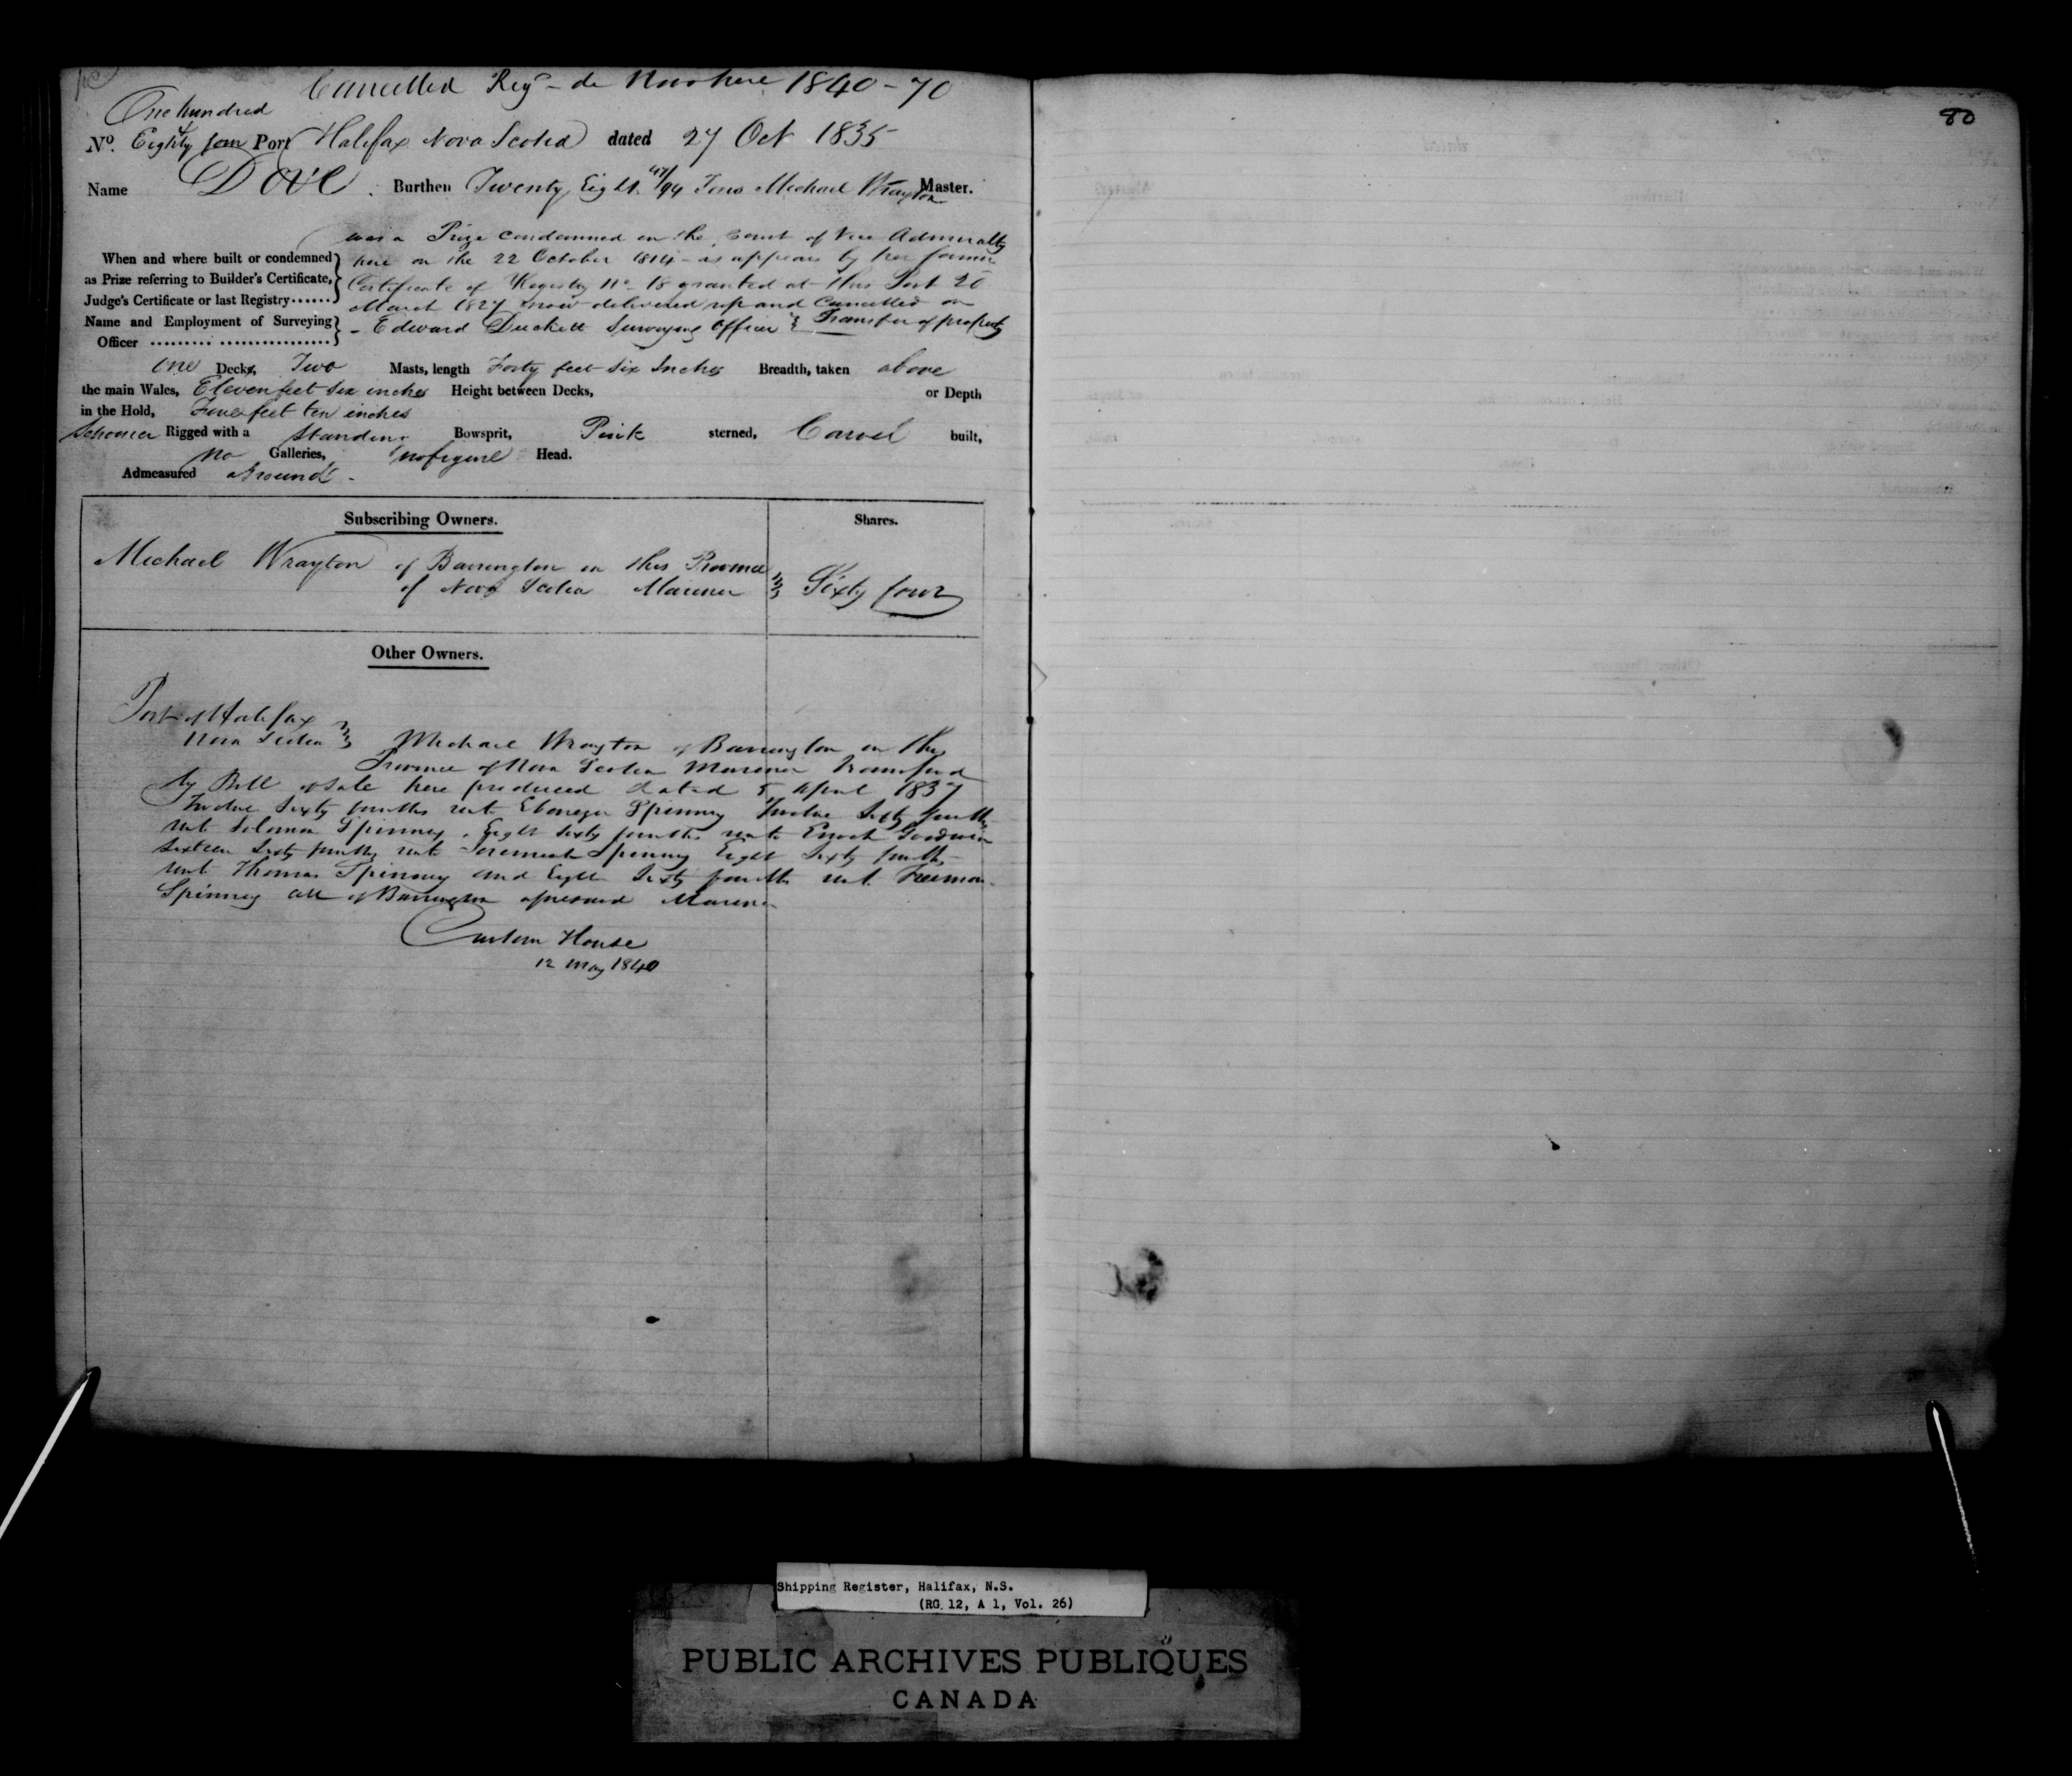 Cancelled Reg^d de Novo here 1840-70
80
One hundred
No. Eighty four Port Halifax Nova Scotia dated 27 Oct 1835
Name Dove Burthen Twenty Eight 47/94 Tons Michael Wrayton Master.
was a Prize condemned in the Court of Vice Admiralty
When and where built or condemned here on the 22 October 1814 - as appears by her former
as Prize referring to Builder's Certificate, Certificate of Registry No 18 granted at this Port 20
Judge's Certificate or last Registry...... March 1827 now delivered up and Cancelled on
Name and Employment of Surveying - Edward Duckett Surveying Officer Transfer of property
Officer
one Decks, Two Masts, length Forty feet Six Inches Breadth, taken above
the main Wales, Eleven feet six inches Height between Decks, or Depth
in the Hold, feet ten inches
Schooner Rigged with a Standing Bowsprit, Pink sterned, Carvel built,
No Galleries, no figure Head.
Admeasured aground -
Subscribing Owners. Shares.
Michael Wrayton of Barrington in this Province
of Nova Scotia Mariner Sixty four
Other Owners.
Port of Halifax
Nova Scotia Michael Wrayton of Barrington in the
Province of Nova Scotia Mariner Transferred
by Bill of Sale here produced dated 5 April 1837
Twelve Sixty fourths unto Ebenezer Spinney Twelve Sixty fourths
unto Solomon Spinney, Eight Sixty fourths unto Enoch Goodwin
Sixteen Sixty fourths unto Jeremiah Spinney Eight Sixty fourths
unto Thomas Spinney and Eight Sixty fourths unto Freeman
Spinney all of Barrington aforesaid Mariners
Custom House
12 May 1840
Shipping Register, Halifax, N.S.
(RG 12, A 1, Vol. 26)
PUBLIC ARCHIVES PUBLIQUES
CANADA